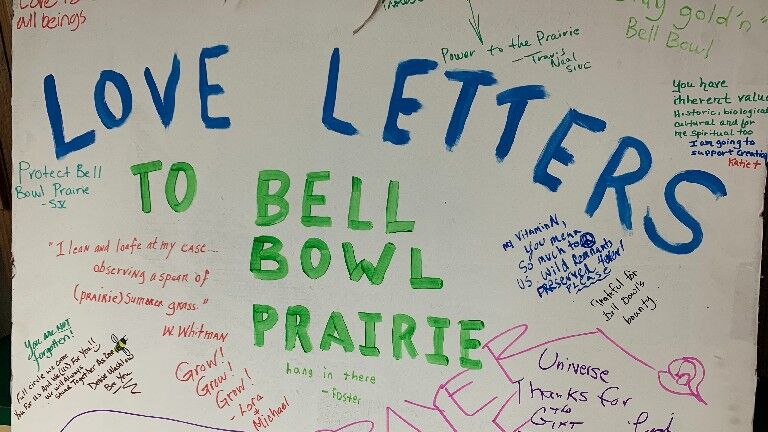 all beings
Power to the Prairie
- Travis
Neal
SIUC
gold'n"
Bell Bowl
LOVE LETTERS
TO BELL
BOWL
PRAIRIE
You have
inherent value
Historic, biological
cultural and for
me spiritual too
I am going to
support creation
Katie +
Protect Bell
Bowl Prairie
- SV
"I lean and loafe at my case...
observing a spear of
(prairie) summer grass."
W. Whitman
my vitamin N,
you mean
so much to
us wild remnants
preserved 4ever!
PLEASE
Grateful for
Bell Bowl's
bounty
You are NOT
forgotten!
Full circle we come
You For us And we (us) For You!!
We will Always
Stand Together As One
Bee You
Grow!
Grow!
Grow!
- Lora
+
Michael
hang in there
- Foster
PRAYER
Universe
Thanks for
the
GIFT